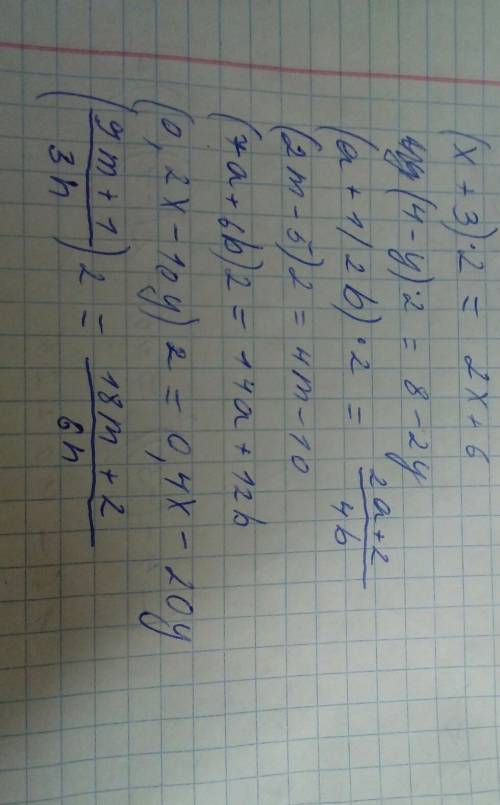 (x + 3)·2 = 2x + 6
(4 - y)·2 = 8 - 2y
(a + 1/2b)·2 = 2a + 2 / 4b
(2m - 5)2 = 4m - 10
(7a + 6b)2 = 14a + 12b
(0,2x - 10y)2 = 0,4x - 20y
(9m + 1 / 3n)2 = 18m + 2 / 6n